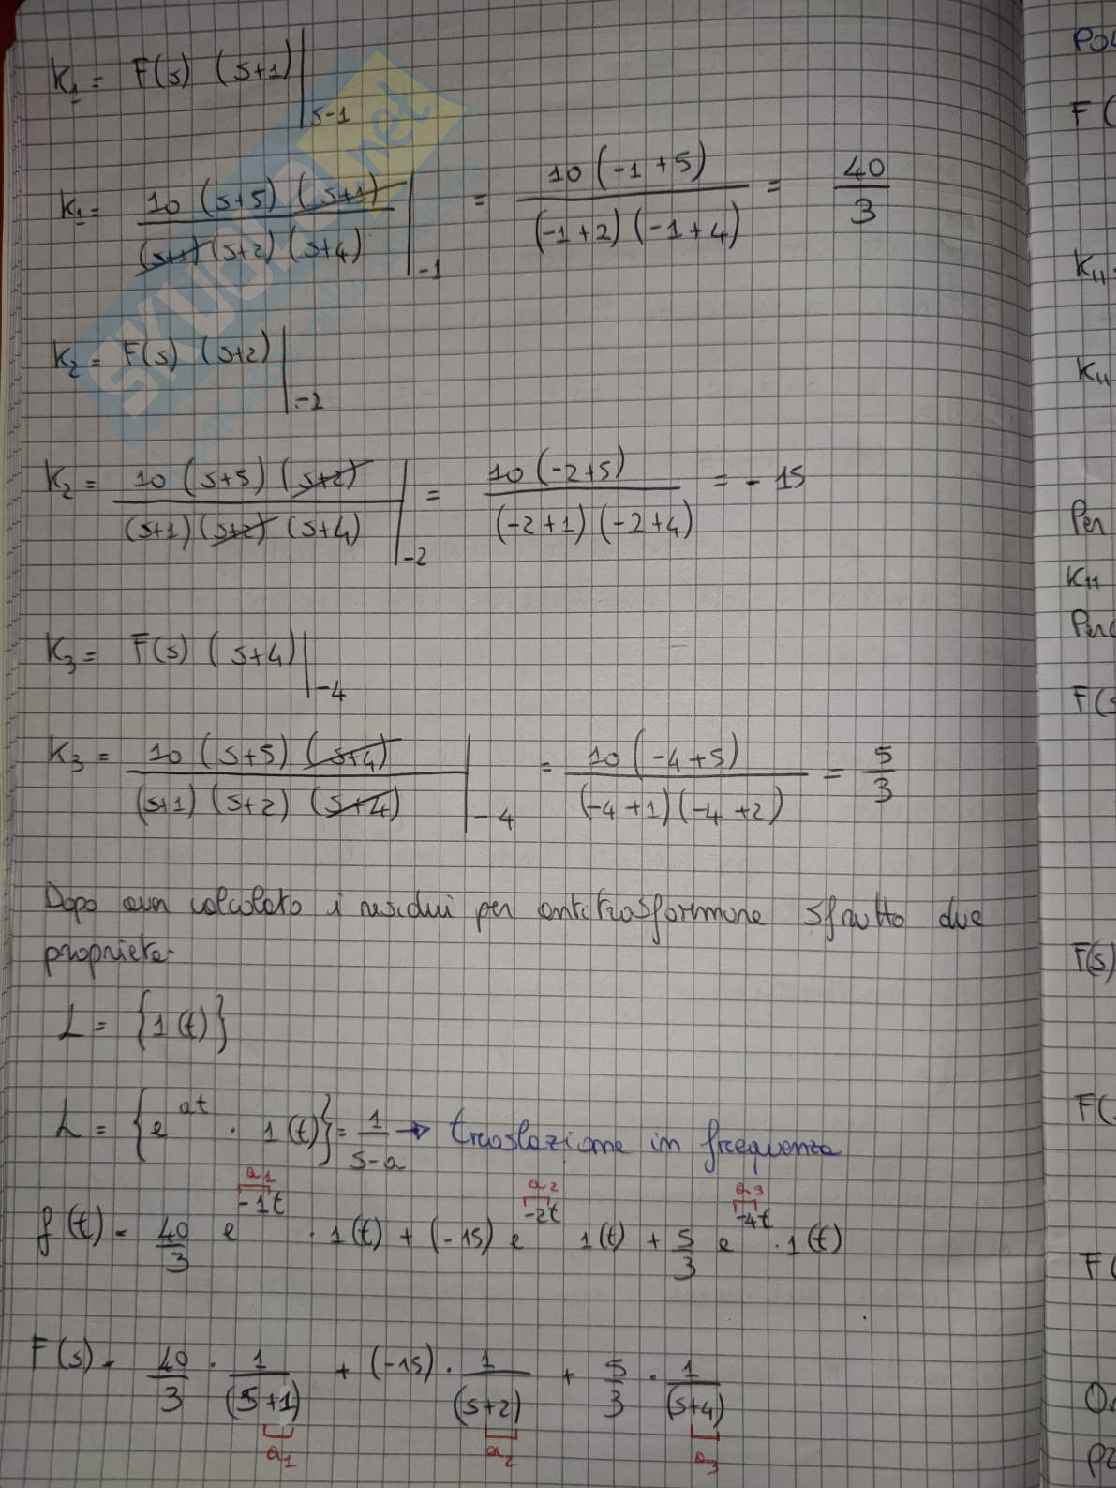 K1 = F(s) (s+1)|s-1
K1 = 10 (s+5) (s+1) / (s+1) (s+2) (s+4) |-1 = 10 (-1+5) / (-1+2) (-1+4) = 40/3
K2 = F(s) (s+2)|-2
K2 = 10 (s+5) (s+2) / (s+1) (s+2) (s+4) |-2 = 10 (-2+5) / (-2+1) (-2+4) = -15
K3 = F(s) (s+4)|-4
K3 = 10 (s+5) (s+4) / (s+1) (s+2) (s+4) |-4 = 10 (-4+5) / (-4+1) (-4+2) = 5/3
Dopo aver calcolato i residui per antitrasformare sfrutto due
proprietà:
L = {1(t)}
L = {e^at · 1(t)} = 1/s-a → traslazione in frequenza
a1 a2 a3
f(t) = 40/3 e^-1t · 1(t) + (-15) e^-2t 1(t) + 5/3 e^-4t · 1(t)
F(s) = 40/3 · 1/(s+1) + (-15) · 1/(s+2) + 5/3 · 1/(s+4)
a1 a2 a3
F(
K11
K11
Per
K11
F(s)
F(
F(
SKUOLA.net